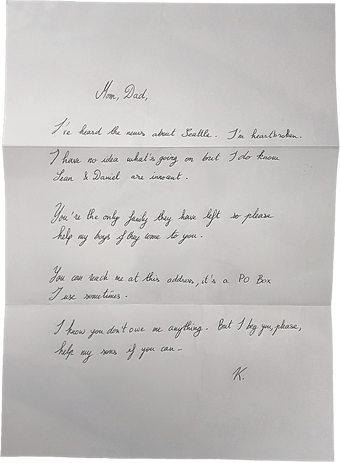 Mom, Dad,
I've heard the news about Seattle. I'm heartbroken.
I have no idea what's going on but I do know
Sean & Daniel are innocent.
You're the only family they have left so please
help my boys if they come to you.
You can reach me at this address, it's a PO Box
I use sometimes.
I know you don't owe me anything. But I beg you, please,
help my sons if you can-
K.